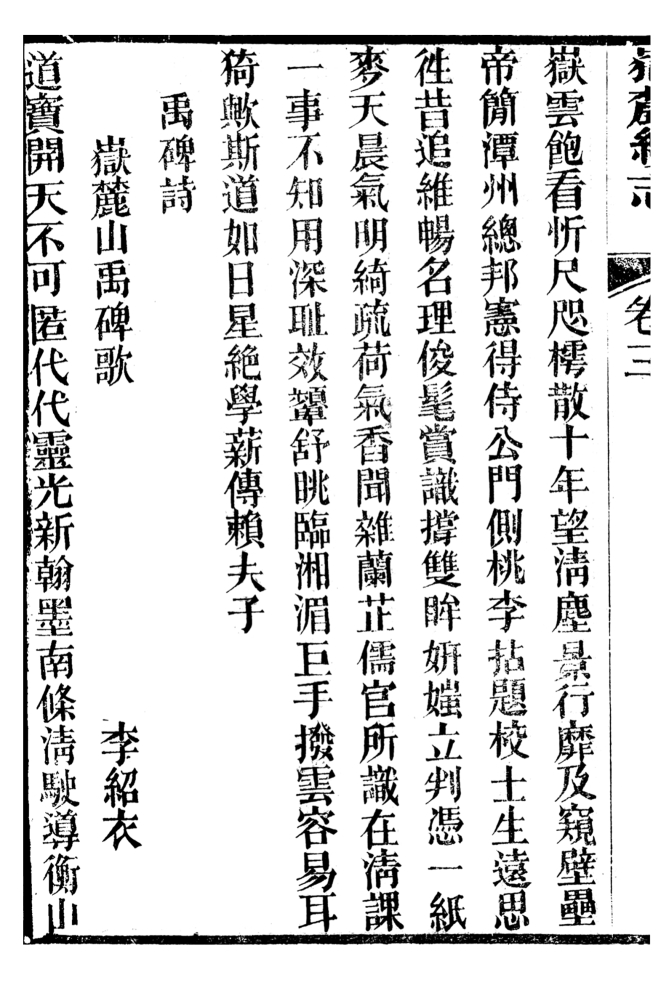 嶽麓續志
卷三
嶽雲飽看忻尺咫樗散十年望淸塵景行靡及窺壁壘
帝簡潭州總邦憲得侍公門側桃李拈題校士生遠思
徃昔追維暢名理俊髦賞識撐雙眸姸媸立判憑一紙
麥天晨氣明綺疏荷氣香聞雜蘭芷儒官所識在淸課
一事不知用深耻效顰舒眺臨湘湄巨手撥雲容易耳
猗歟斯道如日星絶學薪傳賴夫子
禹碑詩
嶽麓山禹碑歌
李紹衣
道寶開天不可匿代代靈光新翰墨南條淸駛導衡山